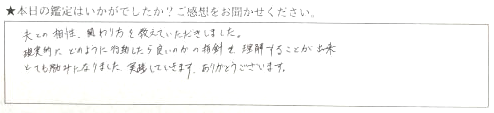 ★本日の鑑定はいかがでしたか？ご感想をお聞かせください。
夫との相性、関わり方を教えていただきました。
現実的に、どのように行動したら良いのかの指針を理解することが出来
とても励みになりました。実践していきます。ありがとうございます。